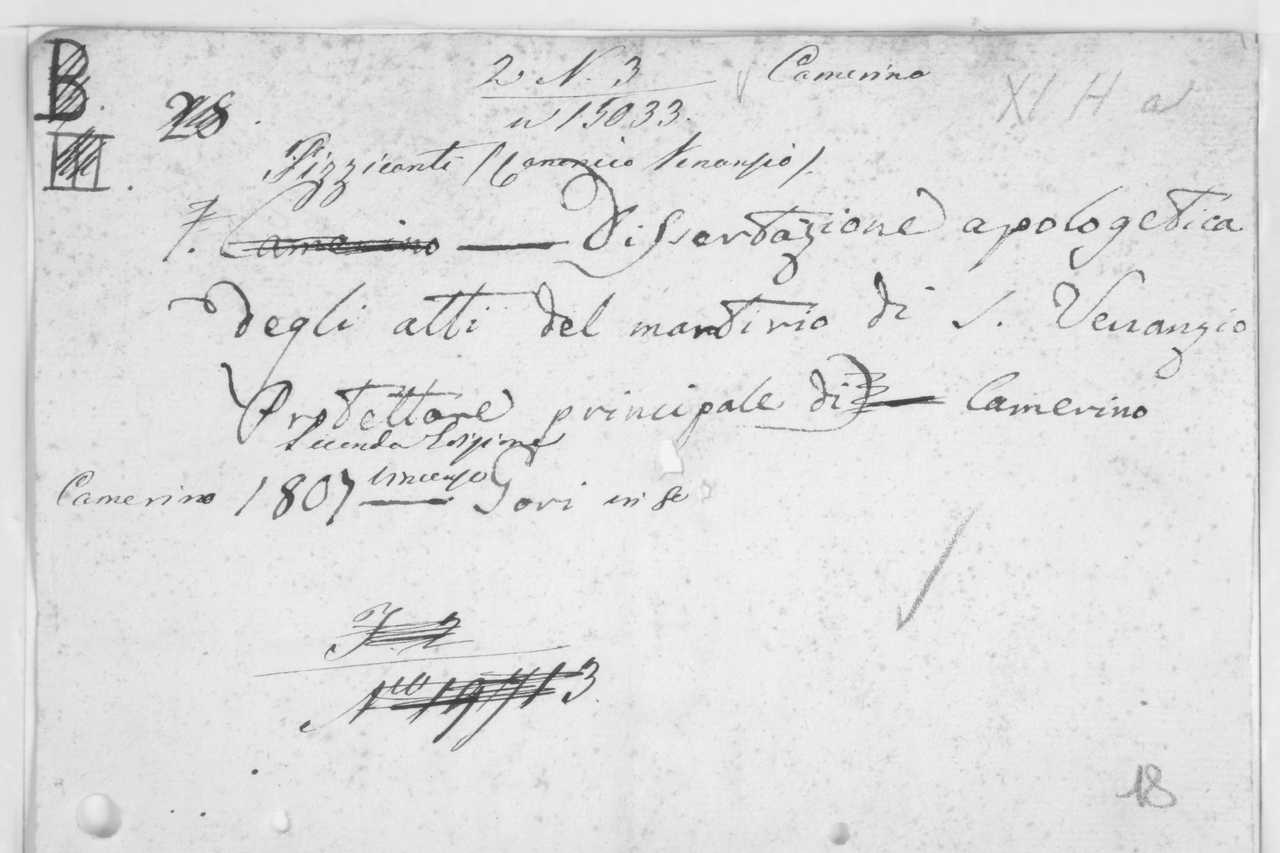 B.
2 N. 3
Camerino
XI H a
28.
n 15033.
Pizzicanti (Canonico Venanzio).
7. Camerino — Dissertazione apologetica
degli atti del martirio di S. Venanzio
Protettore principale di — Camerino
Seconda Edizione
Camerino 1807 Vincenzo Gori in 8º
N.ro 19713
18